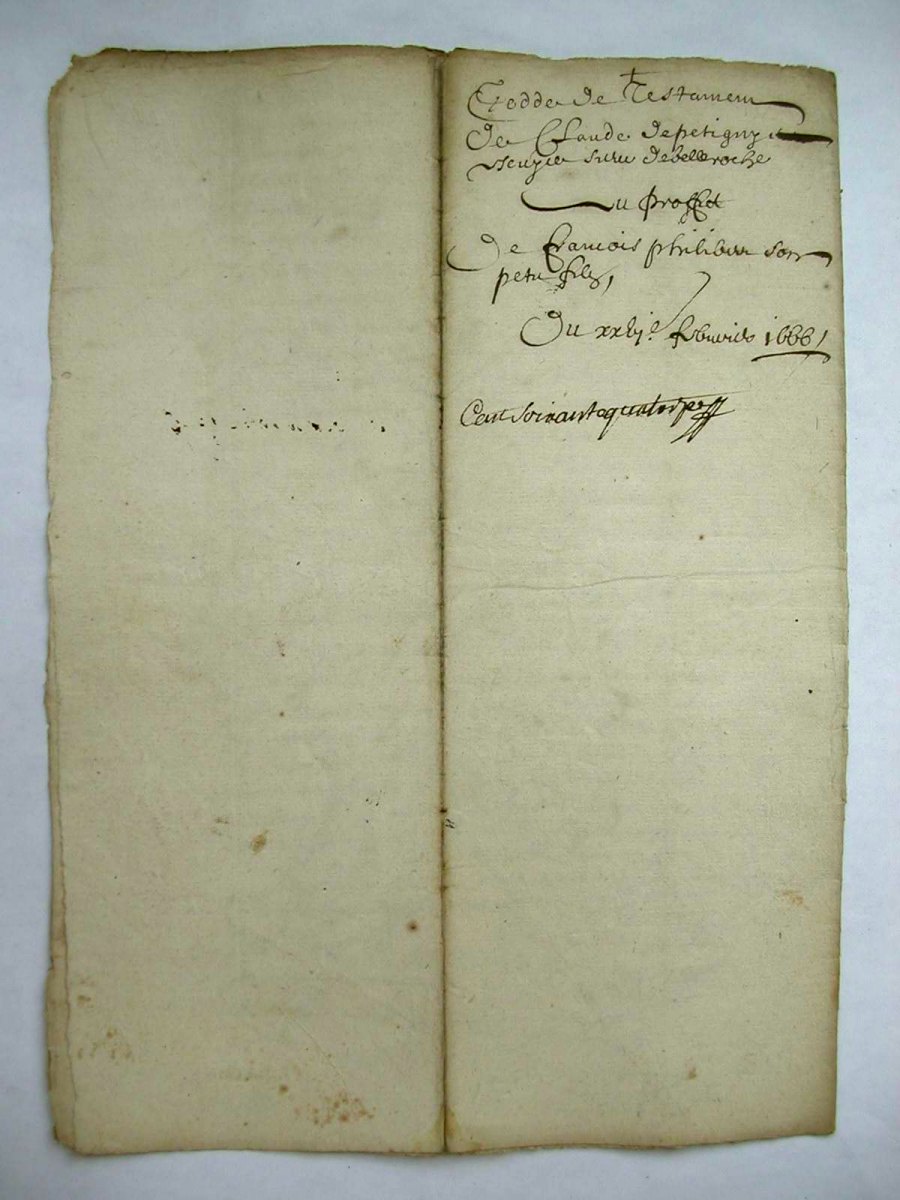 de Testament
De Claude depetigny
sieur debelleroche
Au proffict
De francois philiber son
petit filz,
Du xxvje febvrier 1666,
Cent soixante quatorze